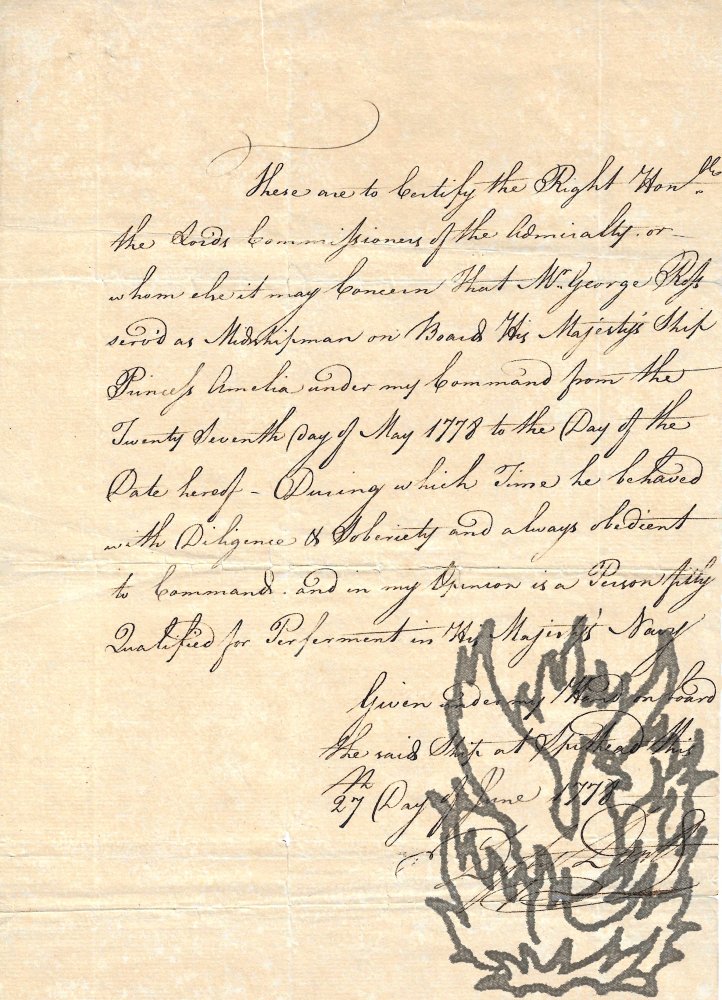 These are to Certify the Right Hon.ble
the Lords Commissioners of the Admiralty. or
whom else it may Concern That Mr. George Ross
serv'd as Midshipman on Board His Majesty's Ship
Princess Amelia under my Command from the
Twenty Seventh Day of May 1778 to the Day of the
Date hereof - During which Time he behaved
with Diligence & Soberiety and always obedient
to Command. and in my Opinion is a Person fitly
Qualified for Perferment in His Majesty's Navy
Given under my Hand on board
the said Ship at Spithead this
27th Day of June 1778